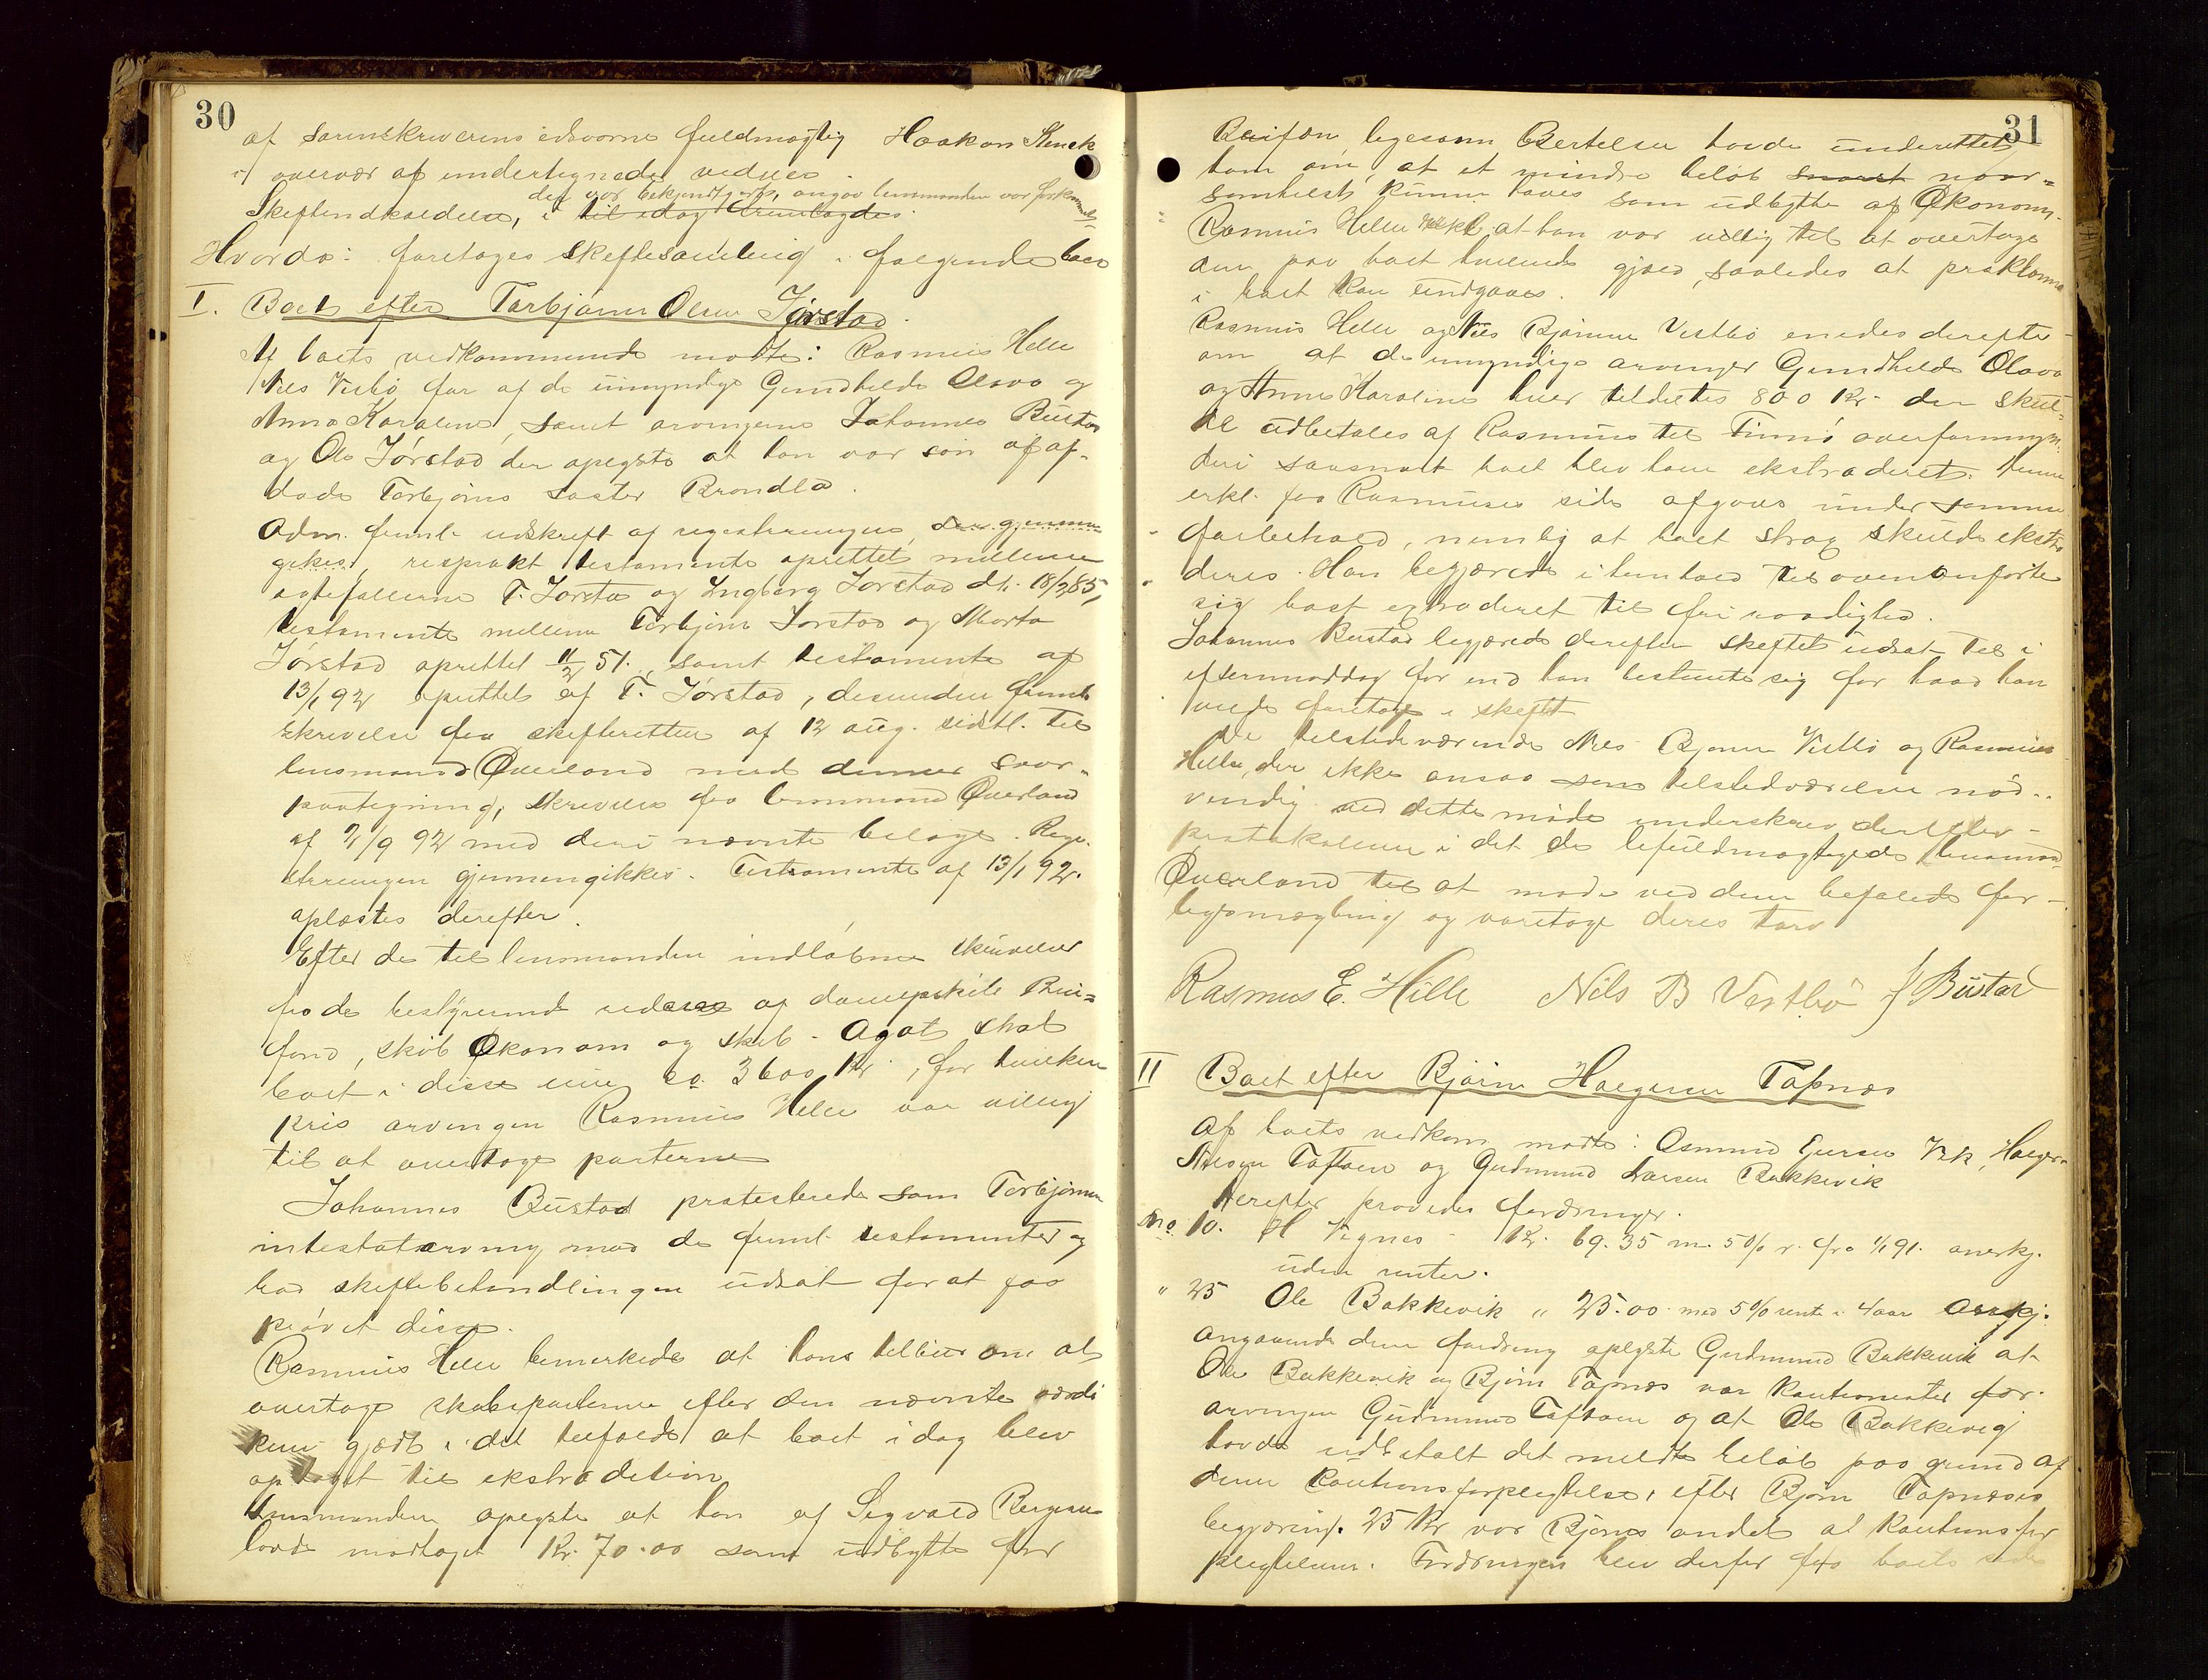 30
af sorenskriverens edsvorne fuldmægtig Haakon Schenck
i overvær af undertegnede vidner.
der var bekjendtgjort, angav lensmanden var forkyndt
Skifteindkaldelse, i til idag
Hvorda: foretoges skiftesamling i følgende boer
I. Boet efter Torbjørn Olsen Jørstad.
Af boets vedkommende mødte: Rasmus Helle
Nils Vestbø for af de umyndige Gundhilde Olava og
Anna Karoline, samt arvingerne Johannes Bustad
og Ole Jørstad der oplyste at han var søn af af-
døde Torbjørns søster Brondla.
Adm. freml. udskrift af registreringen, der gjennem-
gikes, resprakt testamente oprettet mellem
ægtefællerne T. Jørstad og Ingborg Jørstad dt. 18/2 85,
testamente mellem Torbjørn Jørstad og Marta
Jørstad oprettet 11/2 51., samt testamente af
13/1 92 oprettet af T. Jørstad, desuden freml.
skrivelse fra skifteretten af 12 aug. sidstl. til
lensmand Øverland med dennes svar-
paategning, skrivelse fra lensmand Øverland
af 2/9 92 med deri nævnte bilage. Regi-
streringen gjennemgikkes. Testamente af 13/1 92.
oplæstes derefter.
Efter de til lensmanden indløbne skrivelser
fra de bestyrende redere af dampskib Bui-
fond, skib Økonom og skib Agat skal
boet i disse eie ca. 3600 Kr., for hvilken
pris arvingen Rasmus Helle var villig
til at overtage parterne
Johannes Bustad protesterede som Torbjørns
intestatarving mod de freml. testamenter og
bad skiftebehandlingen udsat for at faa
prøvet disse.
Rasmus Helle bemerkede at hans tilbud om at
overtage skibsparterne efter den nævnte værdi
kun gjaldt i det tilfælde at boet i dag blev
optaget til ekstradition
Lensmanden oplyste at han af Sigvald Bergesen
havde modtaget Kr. 70.00 som udbytte for
31
Buifon, ligesom Bertelsen havde underrettet
ham om, at et mindre beløb snarest naar-
somhelst kunne haves som udbytte af Økonom.
Rasmus Helle erkl. at han var villig til at overtage
den paa boet hvilende gjæld, saaledes at proklama
i boet kan undgaaes.
Rasmus Helle og Nils Bjørnsen Vestbø enedes derefter
om at de umyndige arvinger Gundhilde Olava
og Anna Karoline hver tildeltes 800 Kr. der skul-
de udbetales af Rasmus til Finnø overformyn-
deri saasnart boet blev ham ekstraderet. Denne
erkl. fra Rasmuses side afgaves under samme
forbehold, nemlig at boet strax skulde ekstra-
deres. Han begjærede i henhold til ovenanførte
sig boet extraderet til fri raadighed.
Johannes Bustad begjærede derefter skiftet udsat til i
eftermiddag for end han bestemte sig for hvad han
vilde foretage i skiftet
De tilstedeværende Nils Bjørnsen Vestbø og Rasmus
Helle, der ikke ansaa sin tilstedeværelse nød-
vendig ved dette møde underskrev derefter
protokollen i det de befuldmægtigede lensmand
Øverland til at møde ved den befalede for-
ligsmægling og varetage deres tarv
Rasmus E. Hille Nils B Vestbö J Bustad
II Boet efter Bjørn Halgersen Tapnæs
Af boets vedkom. mødte: Osmund Eiersen Vik, Halger
Tøftøen og Gudmund Larsen Bakkevik
Derefter prøvedes fordringer.
No. 10. H Vignes - Kr. 69.35 m. 5% r. fra 1/1 91. anerkj.
uden renter.
" 25 Ole Bakkevik " 25.00. med 5% rente i 4 aar Anerkj.
Angaaende denne fordring oplyste Gudmund Bakkevik at
Ole Bakkevik og Bjørn Tapnæs var kautionister for
arvingen Gudmund Tøftøen og at Ole Bakkevig
havde udbetalt det meldte beløb paa grund af
denne kautionsforpligtelse, efter Bjørn Tapnæses
begjæring. 25 Kr var Bjørns andel af kautionsfor
pligtelsen. Fordringen blev derfor fra boets side